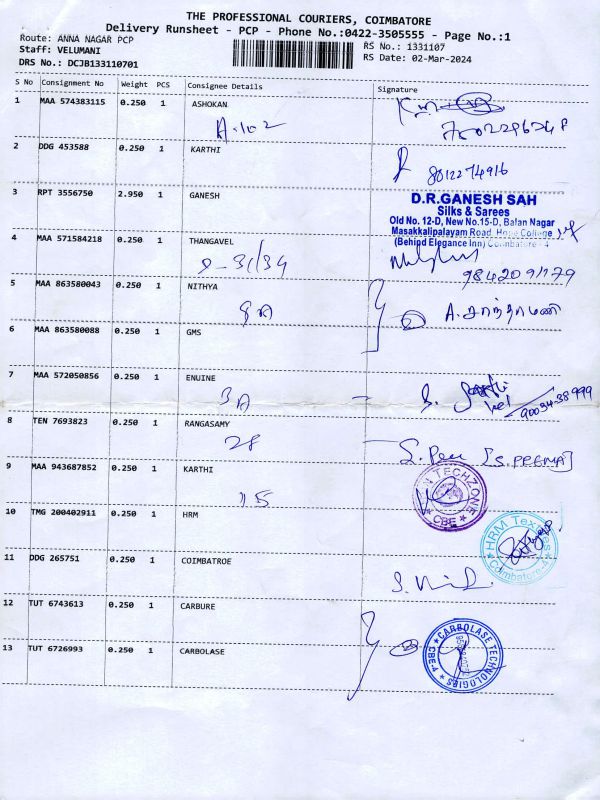 THE PROFESSIONAL COURIERS, COIMBATORE
Delivery Runsheet - PCP - Phone No.:0422-3505555 - Page No.:1
Route: ANNA NAGAR PCP
RS No.: 1331107
Staff: VELUMANI
RS Date: 02-Mar-2024
DRS No.: DCJB133110701
S No Consignment No Weight PCS Consignee Details Signature
1 MAA 574383115 0.250 1 ASHOKAN
A-102
2 DDG 453588 0.250 1 KARTHI
8012274916
3 RPT 3556750 2.950 1 GANESH
D.R.GANESH SAH
Silks & Sarees
Old No. 12-D, New No.15-D, Balan Nagar
Masakkalipalayam Road, Hope College
(Behind Elegance Inn) Coimbatore - 4
4 MAA 571584218 0.250 1 THANGAVEL
9842091779
5 MAA 863580043 0.250 1 NITHYA
8A
A.சாந்தாமணி
6 MAA 863580088 0.250 1 GMS
7 MAA 572050856 0.250 1 ENUINE
3A
8 TEN 7693823 0.250 1 RANGASAMY
28
[S. PREMA]
9 MAA 943687852 0.250 1 KARTHI
15
TECHZONE
* CBE *
10 TMG 200402911 0.250 1 HRM
HRM Textiles
Coimbatore-4
11 DDG 265751 0.250 1 COIMBATROE
12 TUT 6743613 0.250 1 CARBURE
13 TUT 6726993 0.250 1 CARBOLASE
CARBOLASE TECHNOLOGIES
CBE-4